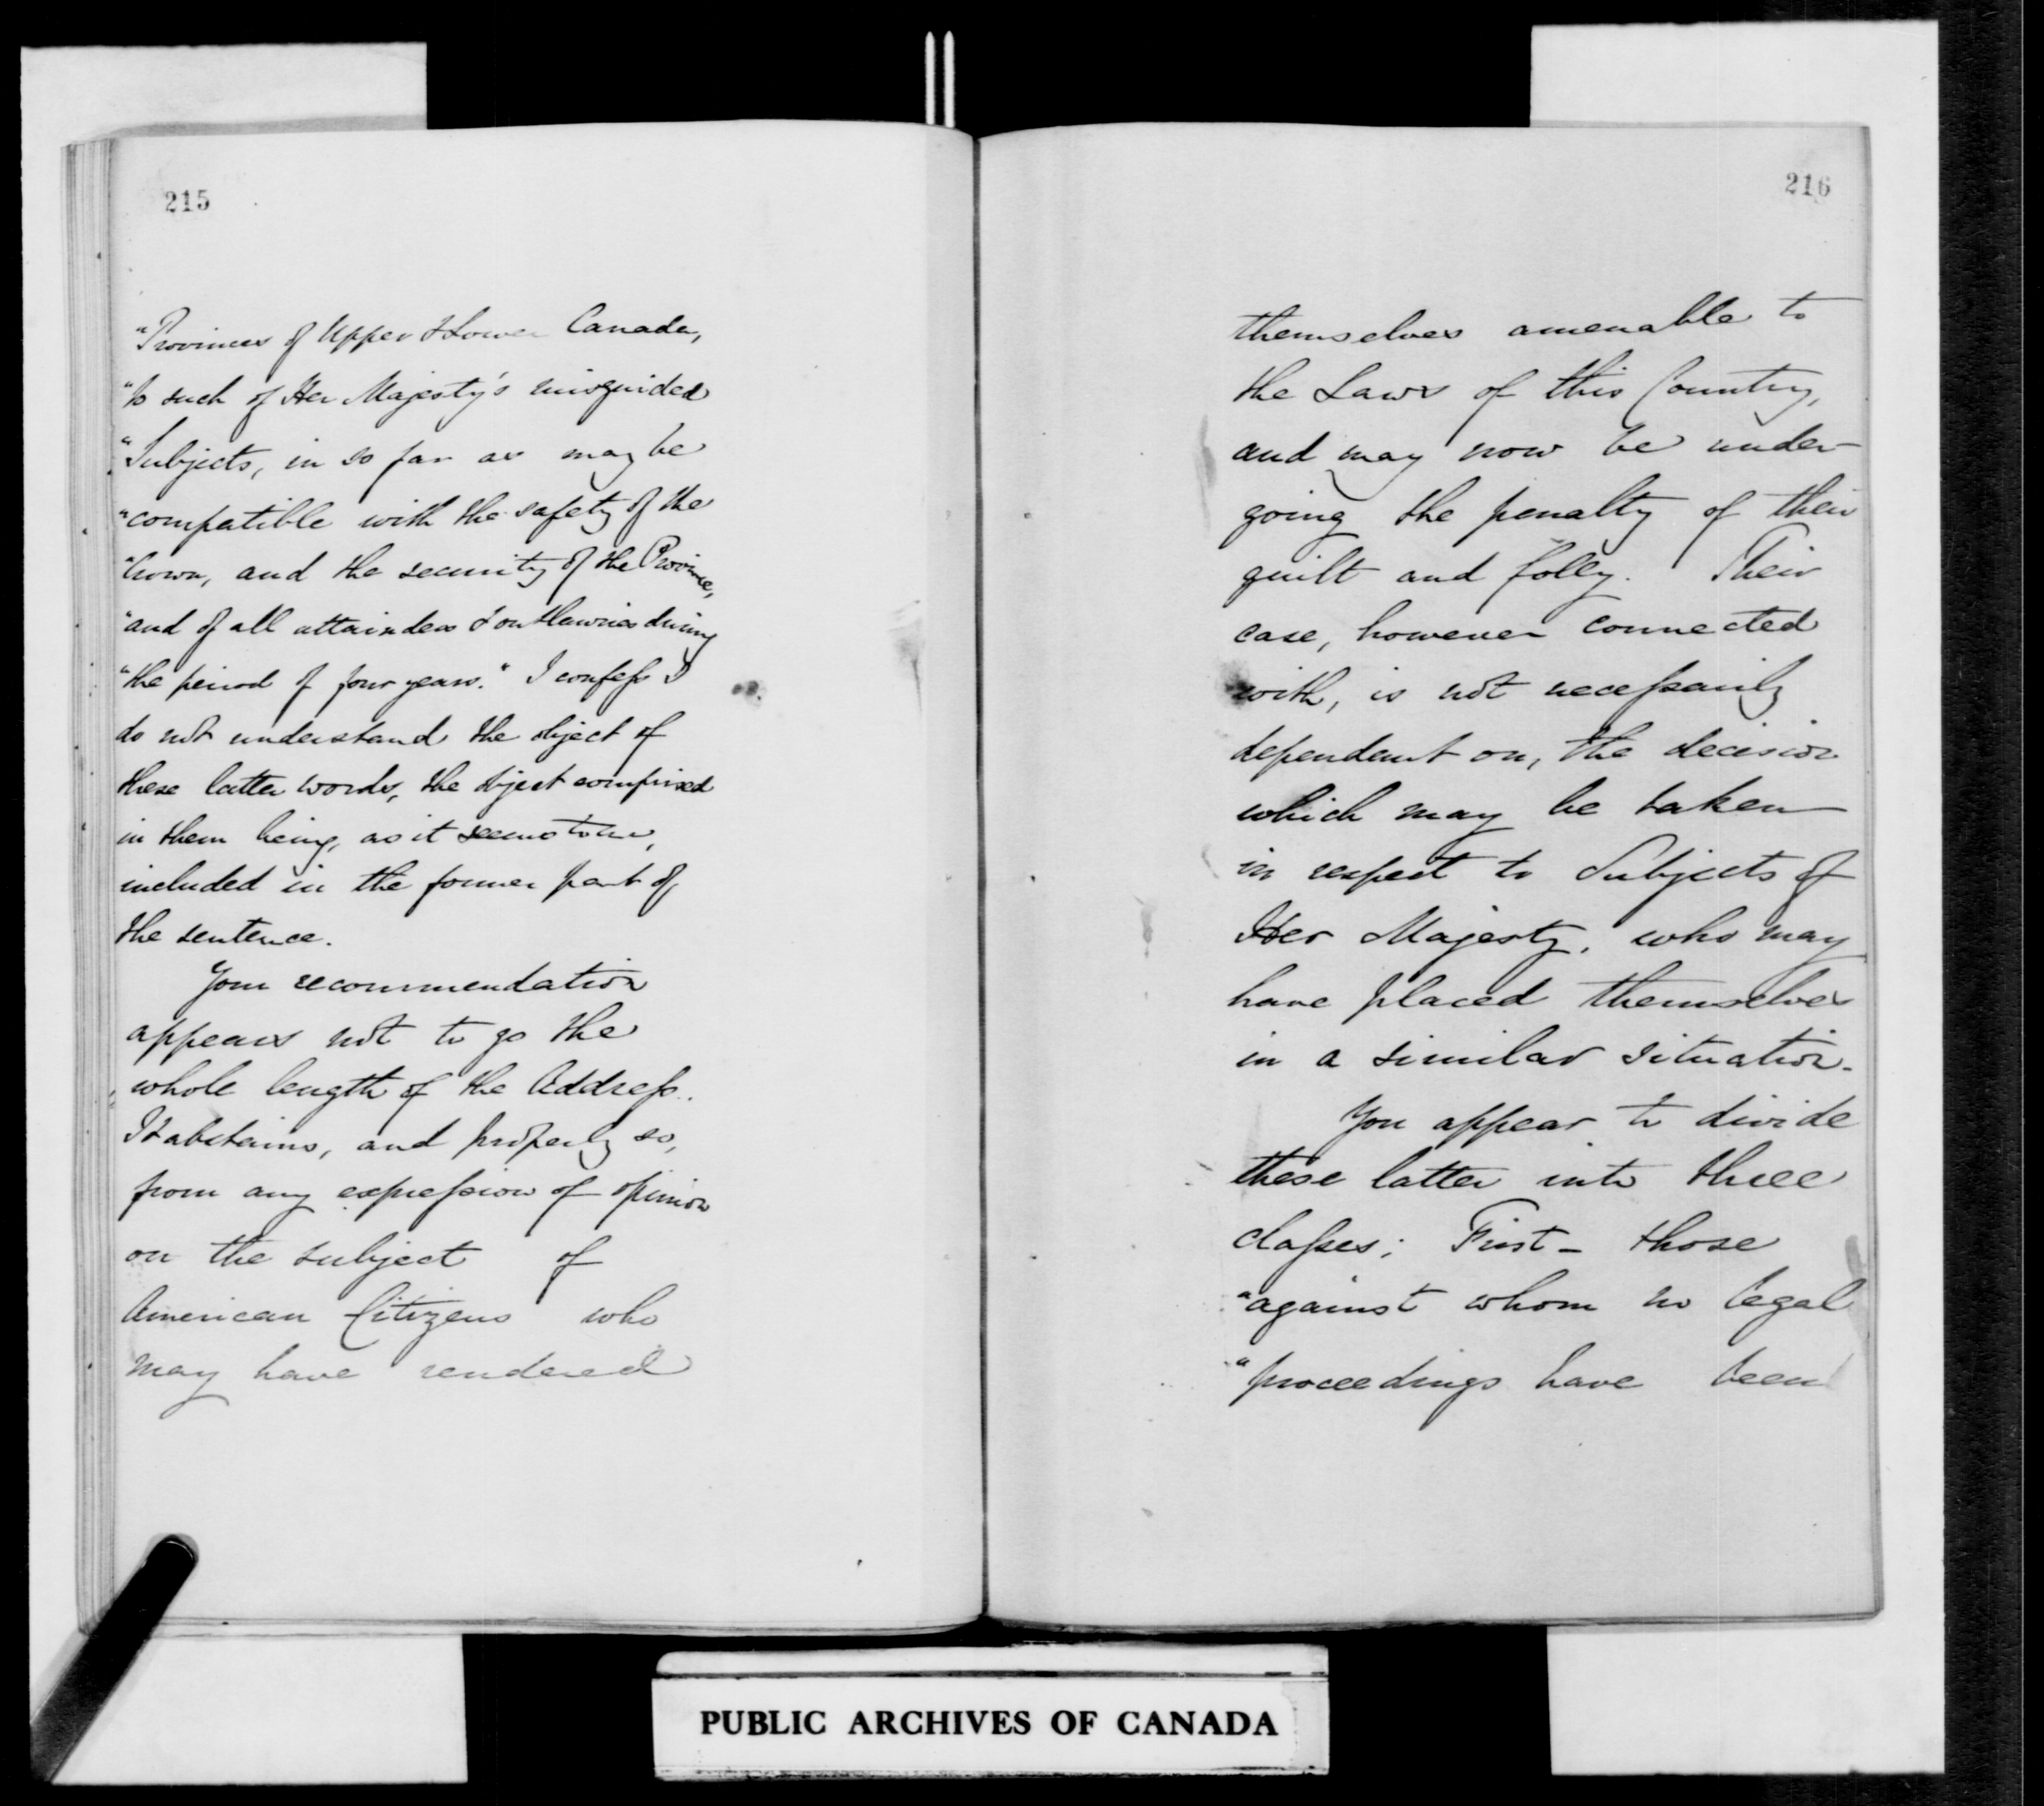 215
"Provinces of Upper & Lower Canada,
"to such of Her Majesty's misguided
"Subjects, in so far as may be
"compatible with the safety of the
"Crown, and the security of the Province,
"and of all attainders & outlawries during
"the period of four years." I confess I
do not understand the object of
these latter words, the object comprised
in them being, as it seems to me,
included in the former part of
the sentence.
Your recommendation
appears not to go the
whole length of the Address.
It abstains, and properly so,
from any expression of opinion
on the subject of
American Citizens who
may have rendered
216
themselves amenable to
the Laws of this Country,
and may now be under-
going the penalty of their
guilt and folly. Their
case, however connected
with, is not necessarily
dependent on, the decision
which may be taken
in respect to Subjects of
Her Majesty, who may
have placed themselves
in a similar situation.
You appear to divide
these latter into three
classes; First - those
"against whom no legal
"proceedings have been
PUBLIC ARCHIVES OF CANADA